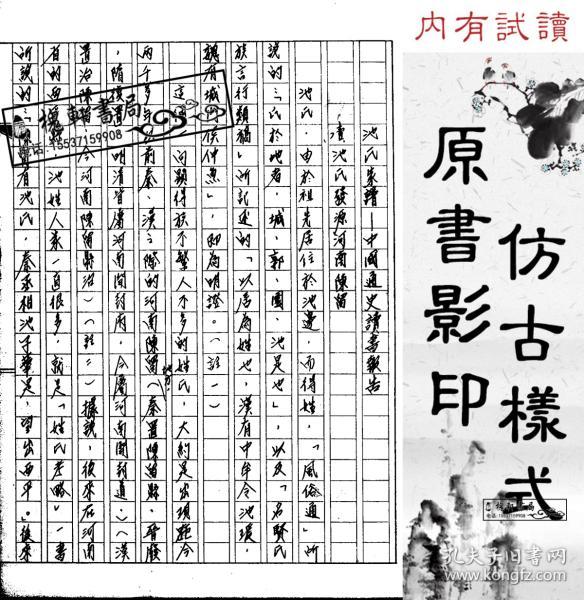 内有試讀
仿古樣式
原書影印
池氏家譜—中國通史讀書報告
池氏發源河南陳留
池氏，由於祖先居住於池邊，而得姓，「風俗通」所
說的「氏於地者，城、郭、園、池是也」，以及「名賢氏
族言行類稿」所記述的「以居為姓也，漢有中牟令池瑗，
魏有城 侯仲魚」，即為明證。（註一）
這 向顯得族不繁人不多的姓氏，大約是出現距今
兩千多年以前秦、漢之際的河南陳留（秦置陳留縣，晉廢
，隋復置，明清皆屬河南開封府，今屬河南開封道。）（漢
置治陳留 今河南陳留縣治）（註二）據說，後來在河南
有的西 池姓人家一直很多，就是「姓氏考略」一書
所說的「陳留有池氏，秦丞相池子華是，望出西平。」後來
地方
軒書局
電話:15537159908
孔夫子旧书网
kongfz.com